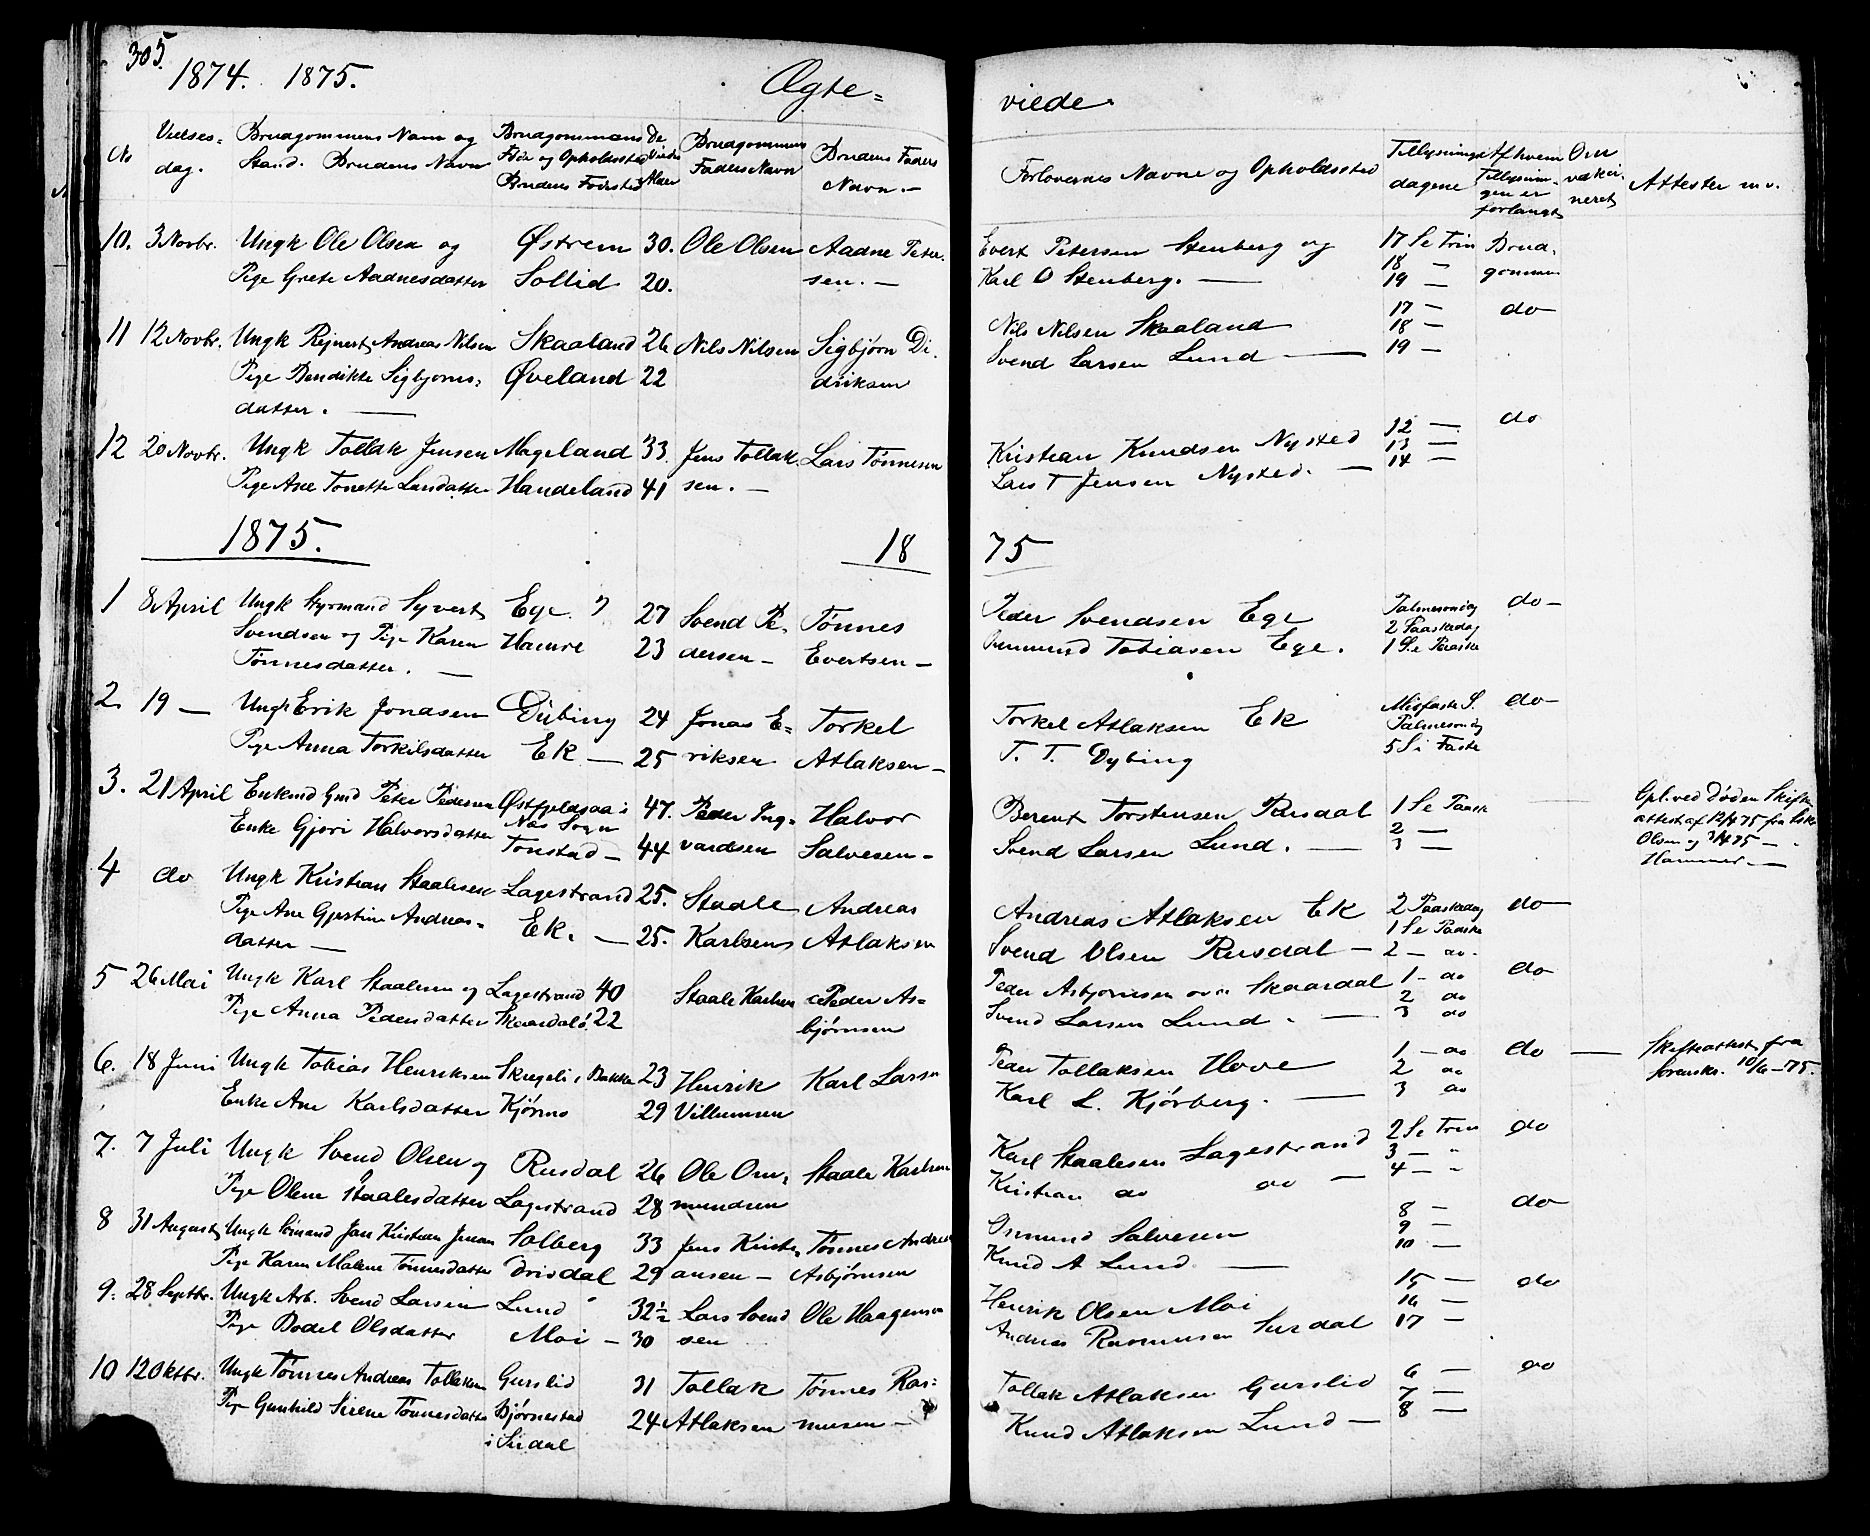 305.
1874. 1875.
Ægte=
viede.
No
Vielses=
dag.
Brudgommens Navn og
Stand. Brudens Navn
Brudgommens
Føde og Opholdssted
Brudens Fødested
De
Viedes
Alder
Brudgommens
Faders Navn
Brudens Faders
Navn. —
Forlovernes Navne og Opholdssted
Tillysnings
dagene
Af hvem
Tillysnin-
gen er
forlangt
Om
vakci-
neret
Attester m.v.
10. 3 Novbr. Ungk Ole Olsen og Østrem 30. Ole Olsen Aadne Peter- Evert Petersen Stenberg og 17 Se Trin Brud-
Pige Grete Aadnesdatter Sollid 20. sen. — Karl O Stenberg. — 18 — gommen
19 —
11 12 Novbr. Ungk Rejnert Andreas Nilsen Skaaland 26 Nils Nilsen Sigbjørn Di- Nils Nilsen Skaaland 17 — do
18 —
Pige Bendikte Sigbjørns= Øveland 22 driksen Svend Larsen Lund — 19 —
datter. —
12 20 Novbr. Ungk Tollak Jensen Mageland 33. Jens Tollak Lars Tønnesen Kristian Knudsen Nysted 12 — do
13 —
Pige Ane Tonette Larsdatter Handeland 41 sen. — Lars T Jensen Nysted. — 14 —
1875. 18 75
1 8 April Ungk Styrmand Syvert Ege 27 Svend Pe- Tønnes Peder Svendsen Ege Palmesondag do —
Svendsen og Pige Karen Hamre 23 dersen — Evertsen — Tobiasen Ege. 2 Paaskedag
Tønnesdatter. — 1 Se Paaske
2. 19 — Ungk Erik Jonasen Dübing 24 Jonas E= Torkel Torkel Atlaksen Ek Misfaste S. do —
Palmesondag
Pige Anna Torkilsdatter Ek — 25 riksen Atlaksen — T. T. Dybing 5 Si Faste
3. 21 April Enkmd Gmd Peter Pedersen Østfjeldsaa i 47. Peder Ing= Halvor Berent Torstensen Rusdal 1 Se Paask Opl. ved Døden Skifte
Næs Sogn 2 — attest af 12/4 75 fra
Enke Gjøri Halvorsdatter Tonstad — 44 vardsen Salvesen — Svend Larsen Lund. — 3 — Olsen og 3/4 75 —
Hammer —
4 do Ungk Kristian Staalesen Lagestrand 25. Staale Andreas Andreas Atlaksen Ek 2 Paaskedag do —
Pige Ane Gjertine Andreas= Ek. — 25. Karlsen Atlaksen Svend Olsen Rusdal — 1 Se Paaske
datter — 2 — do.
5 26 Mai Ungk Karl Staalesen og Lagestrand 40 Staale Karlsen Peder As= Peder Asbjørnsen Skaardal 1 — do do
2 do
Pige Anna Pedersdatter Skaardal 22 bjørnsen Svend Larsen Lund. — 3 do
6. 18 Juni Ungk Tobias Henriksen Skregeli i Bakke 23 Henrik Karl Larsen Peder Tollaksen Hove 1 — do do — Skifteattest fra
2 do Sorenskr. 10/6 — 75.
Enke Ane Karlsdatter Kjørmo 29 Villumsen Karl L. Kjørberg. — 3 do
7. 7 Juli Ungk Svend Olsen og Rusdal 26 Ole Om= Staale Karlsen Karl Staalesen Lagestrand 2 Se Trin do
3 — "
Pige Olene Staalesdatter Lagestrand 28 mundsen Kristian do do — 4 — "
8 31 August Ungk Sömand Jan Kristian Jensen Solberg 33 Jens Kristi- Tønnes Andreas Osmund Salvesen 8 — do
9 —
Pige Karen Malene Tønnesdatter Drivdal 29 ansen — Asbjørnsen Knud A Lund. — 10 —
9. 28 Septbr. Ungk Arb. Svend Larsen Lund 32½ Lars Svend Ole Haagensen Henrik Olsen Moi 15 — do
16 —
Pige Bodel Olsdatter Moi — 30 sen Andreas Rasmusen Surdal 17 —
10 12 Oktbr. Ungk Tønnes Andreas Tollaksen Gurslid 31 Tollak Tønnes Ras= Tollak Atlaksen Gurslid 6 — do
7 —
Pige Gunhild Sirene Tønnesdatter Bjørnestad 24 Atlaksen musen — Knud Atlaksen Lund — 8 —
i Sirdal